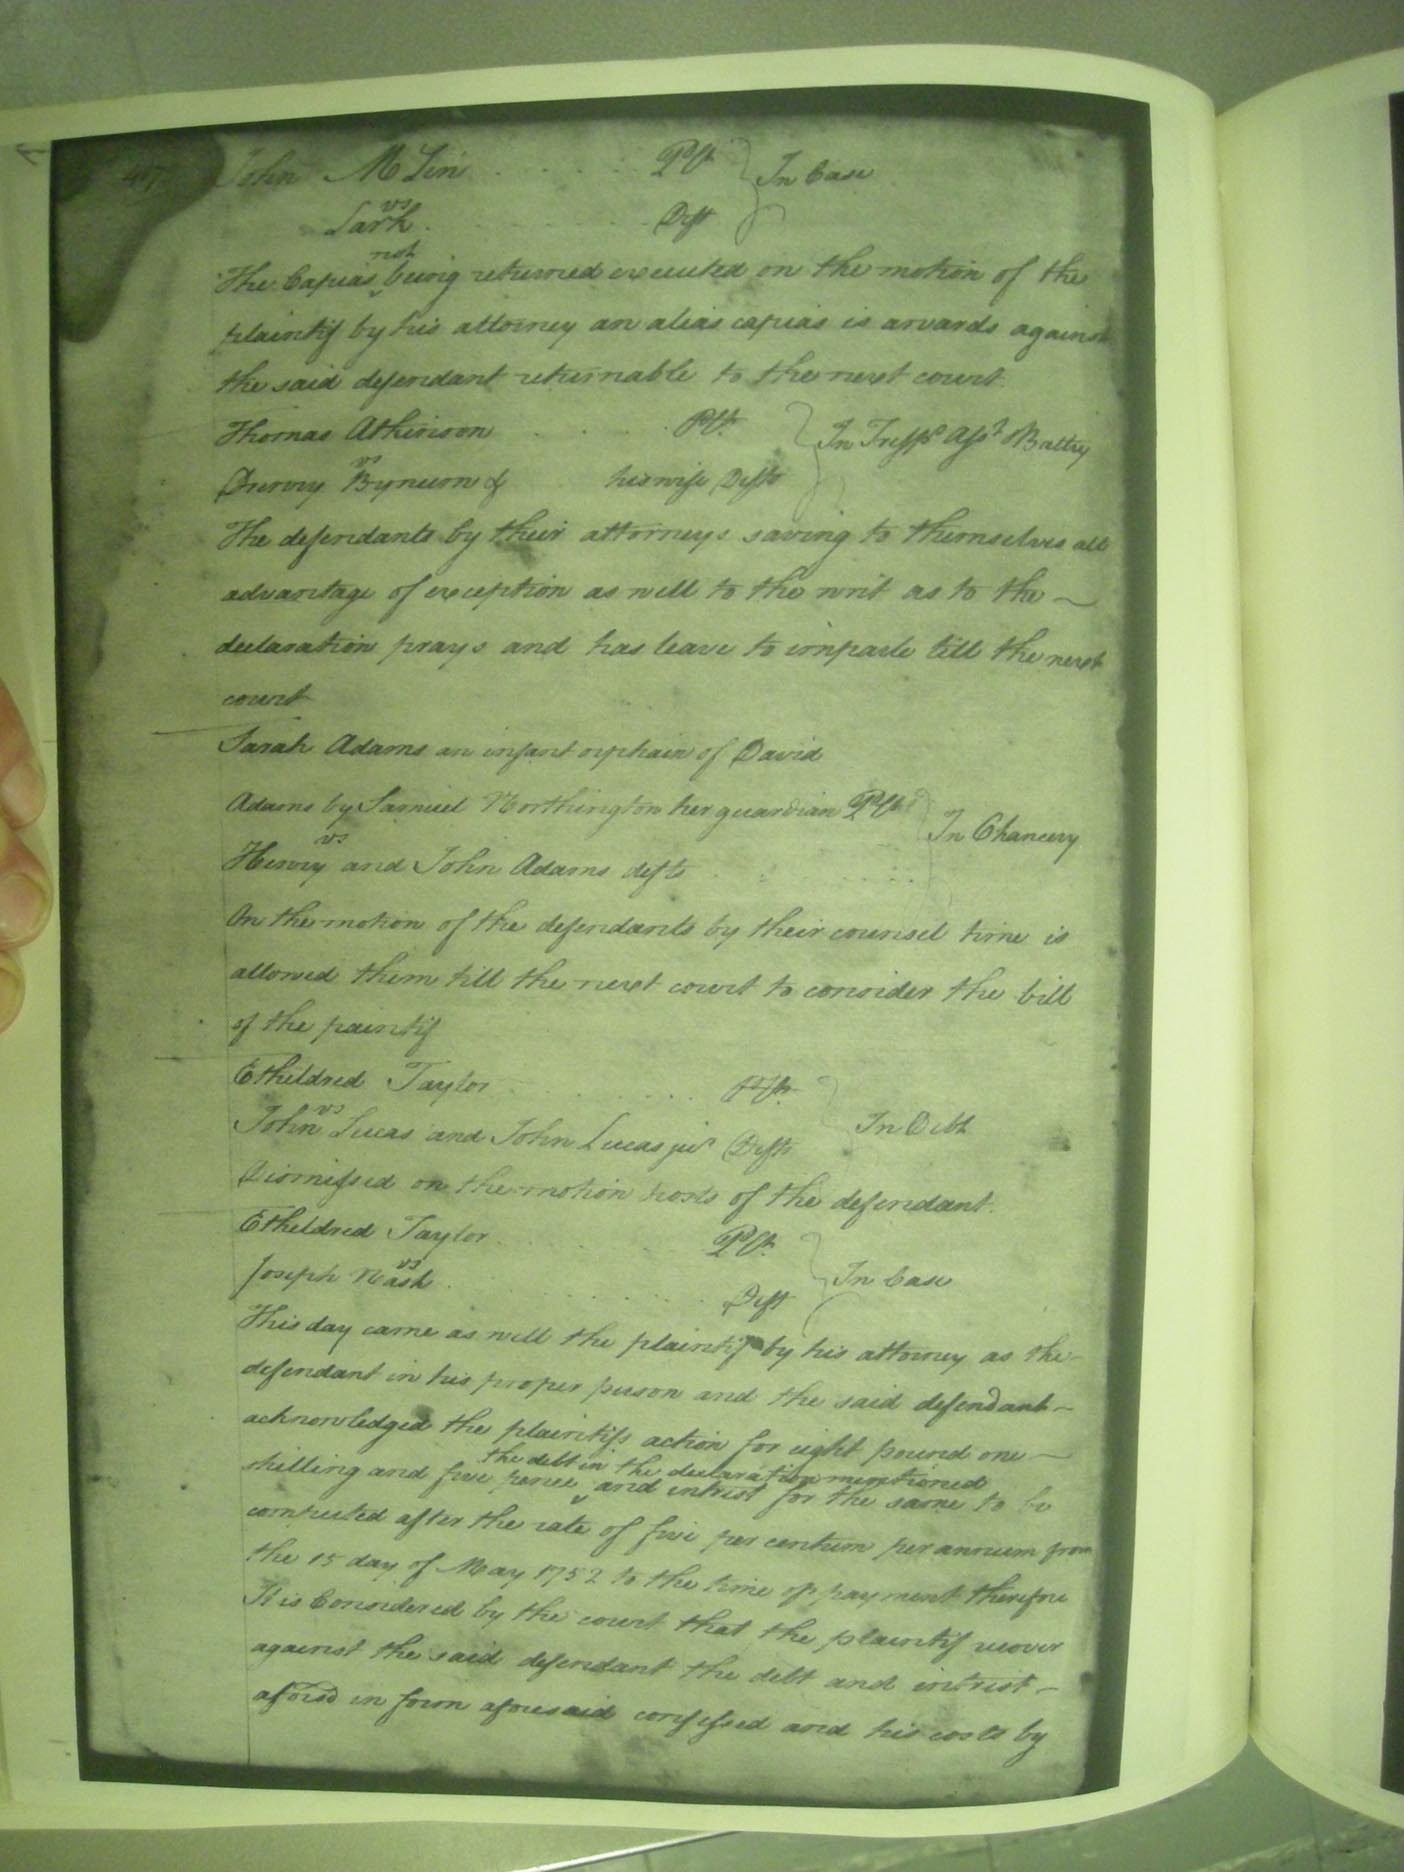 407 John McLin . . . . . . Plt. } In Case
vs
Lark . . . . . . . Deft
not
The Capias ‸ being returned executed on the motion of the
plaintif by his attorney an alias capias is awards against
the said defendant returnable to the next court.
Thomas Atkinson . . . . . Plt. } In Tresps. Asst. & Battry
vs
Drewry Bynum & his wife Defts
The defendants by their attorneys saving to themselves all
advantage of exception as well to the writ as to the —
declaration prays and has leave to imparle till the next
court
Sarah Adams an infant orphain of David
Adams by Samuel Northington her guardian Plt. } In Chancery
vs
Henry and John Adams defts . . . . . .
On the motion of the defendants by their counsel time is
allowed them till the next court to consider the bill
of the paintif
Etheldred Taylor . . . . . . . Plt. } In Debt
vs
John Lucas and John Lucas junr Defts
Dismissed on the motion & costs of the defendant.
Etheldred Taylor . . . . . . Plt. } In Case
vs
Joseph Nash . . . . . . . . Deft
This day came as well the plaintif by his attorney as the
defendant in his proper person and the said defendant —
acknowledged the plaintifs action for eight pound one —
the debt in the declaration mentioned
shilling and five pence ‸ and intrist for the same to be
computed after the rate of five per centum per annum from
the 15 day of May 1752 to the time of payment therefore
It is Considered by the court that the plaintif recover
against the said defendant the debt and intrist —
aforsd in form aforesaid confessed and his costs by